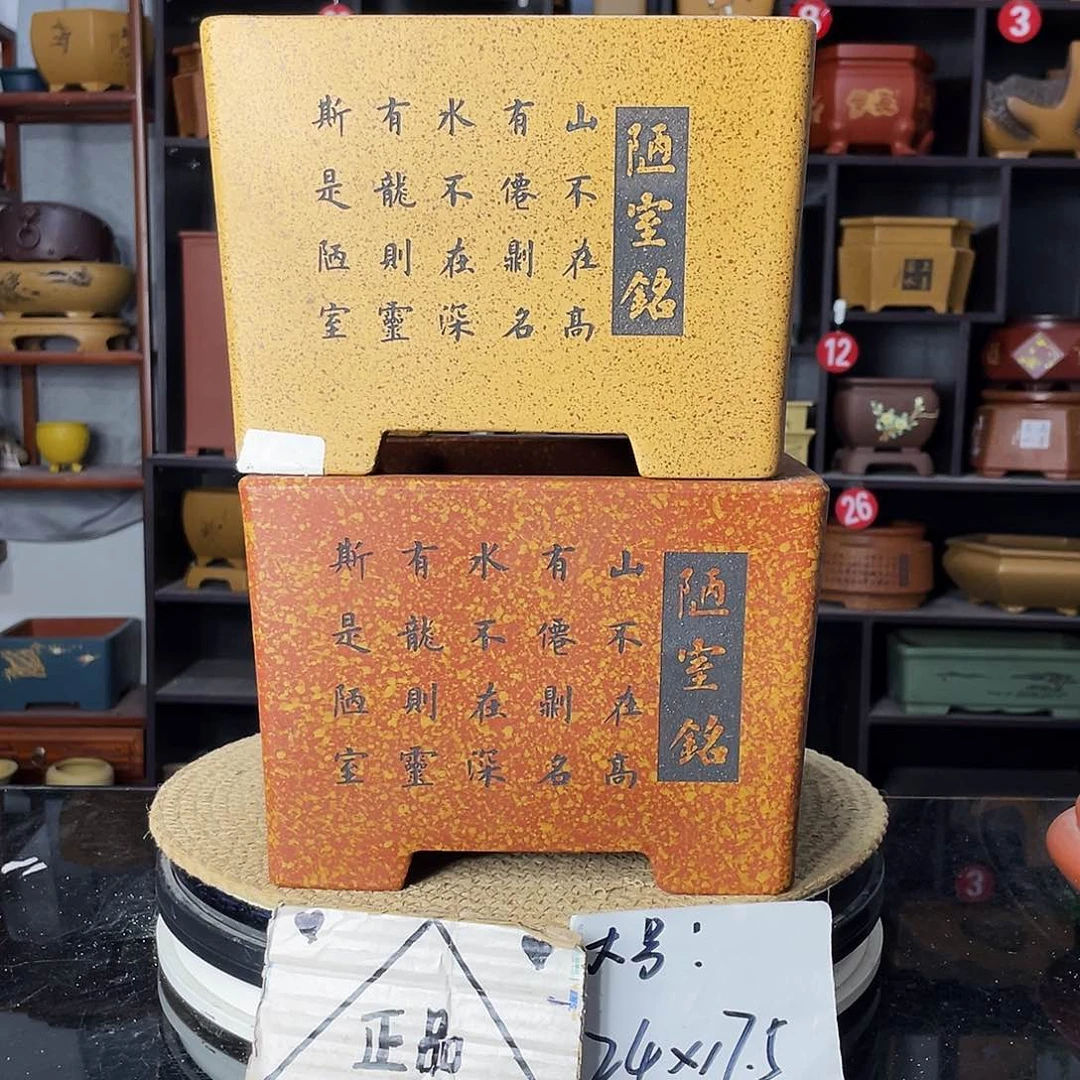 陋室銘
山不在高
有僊則名
水不在深
有龍則靈
斯是陋室
陋室銘
山不在高
有僊則名
水不在深
有龍則靈
斯是陋室
正品
大号：
24×17.5
3
12
26
3